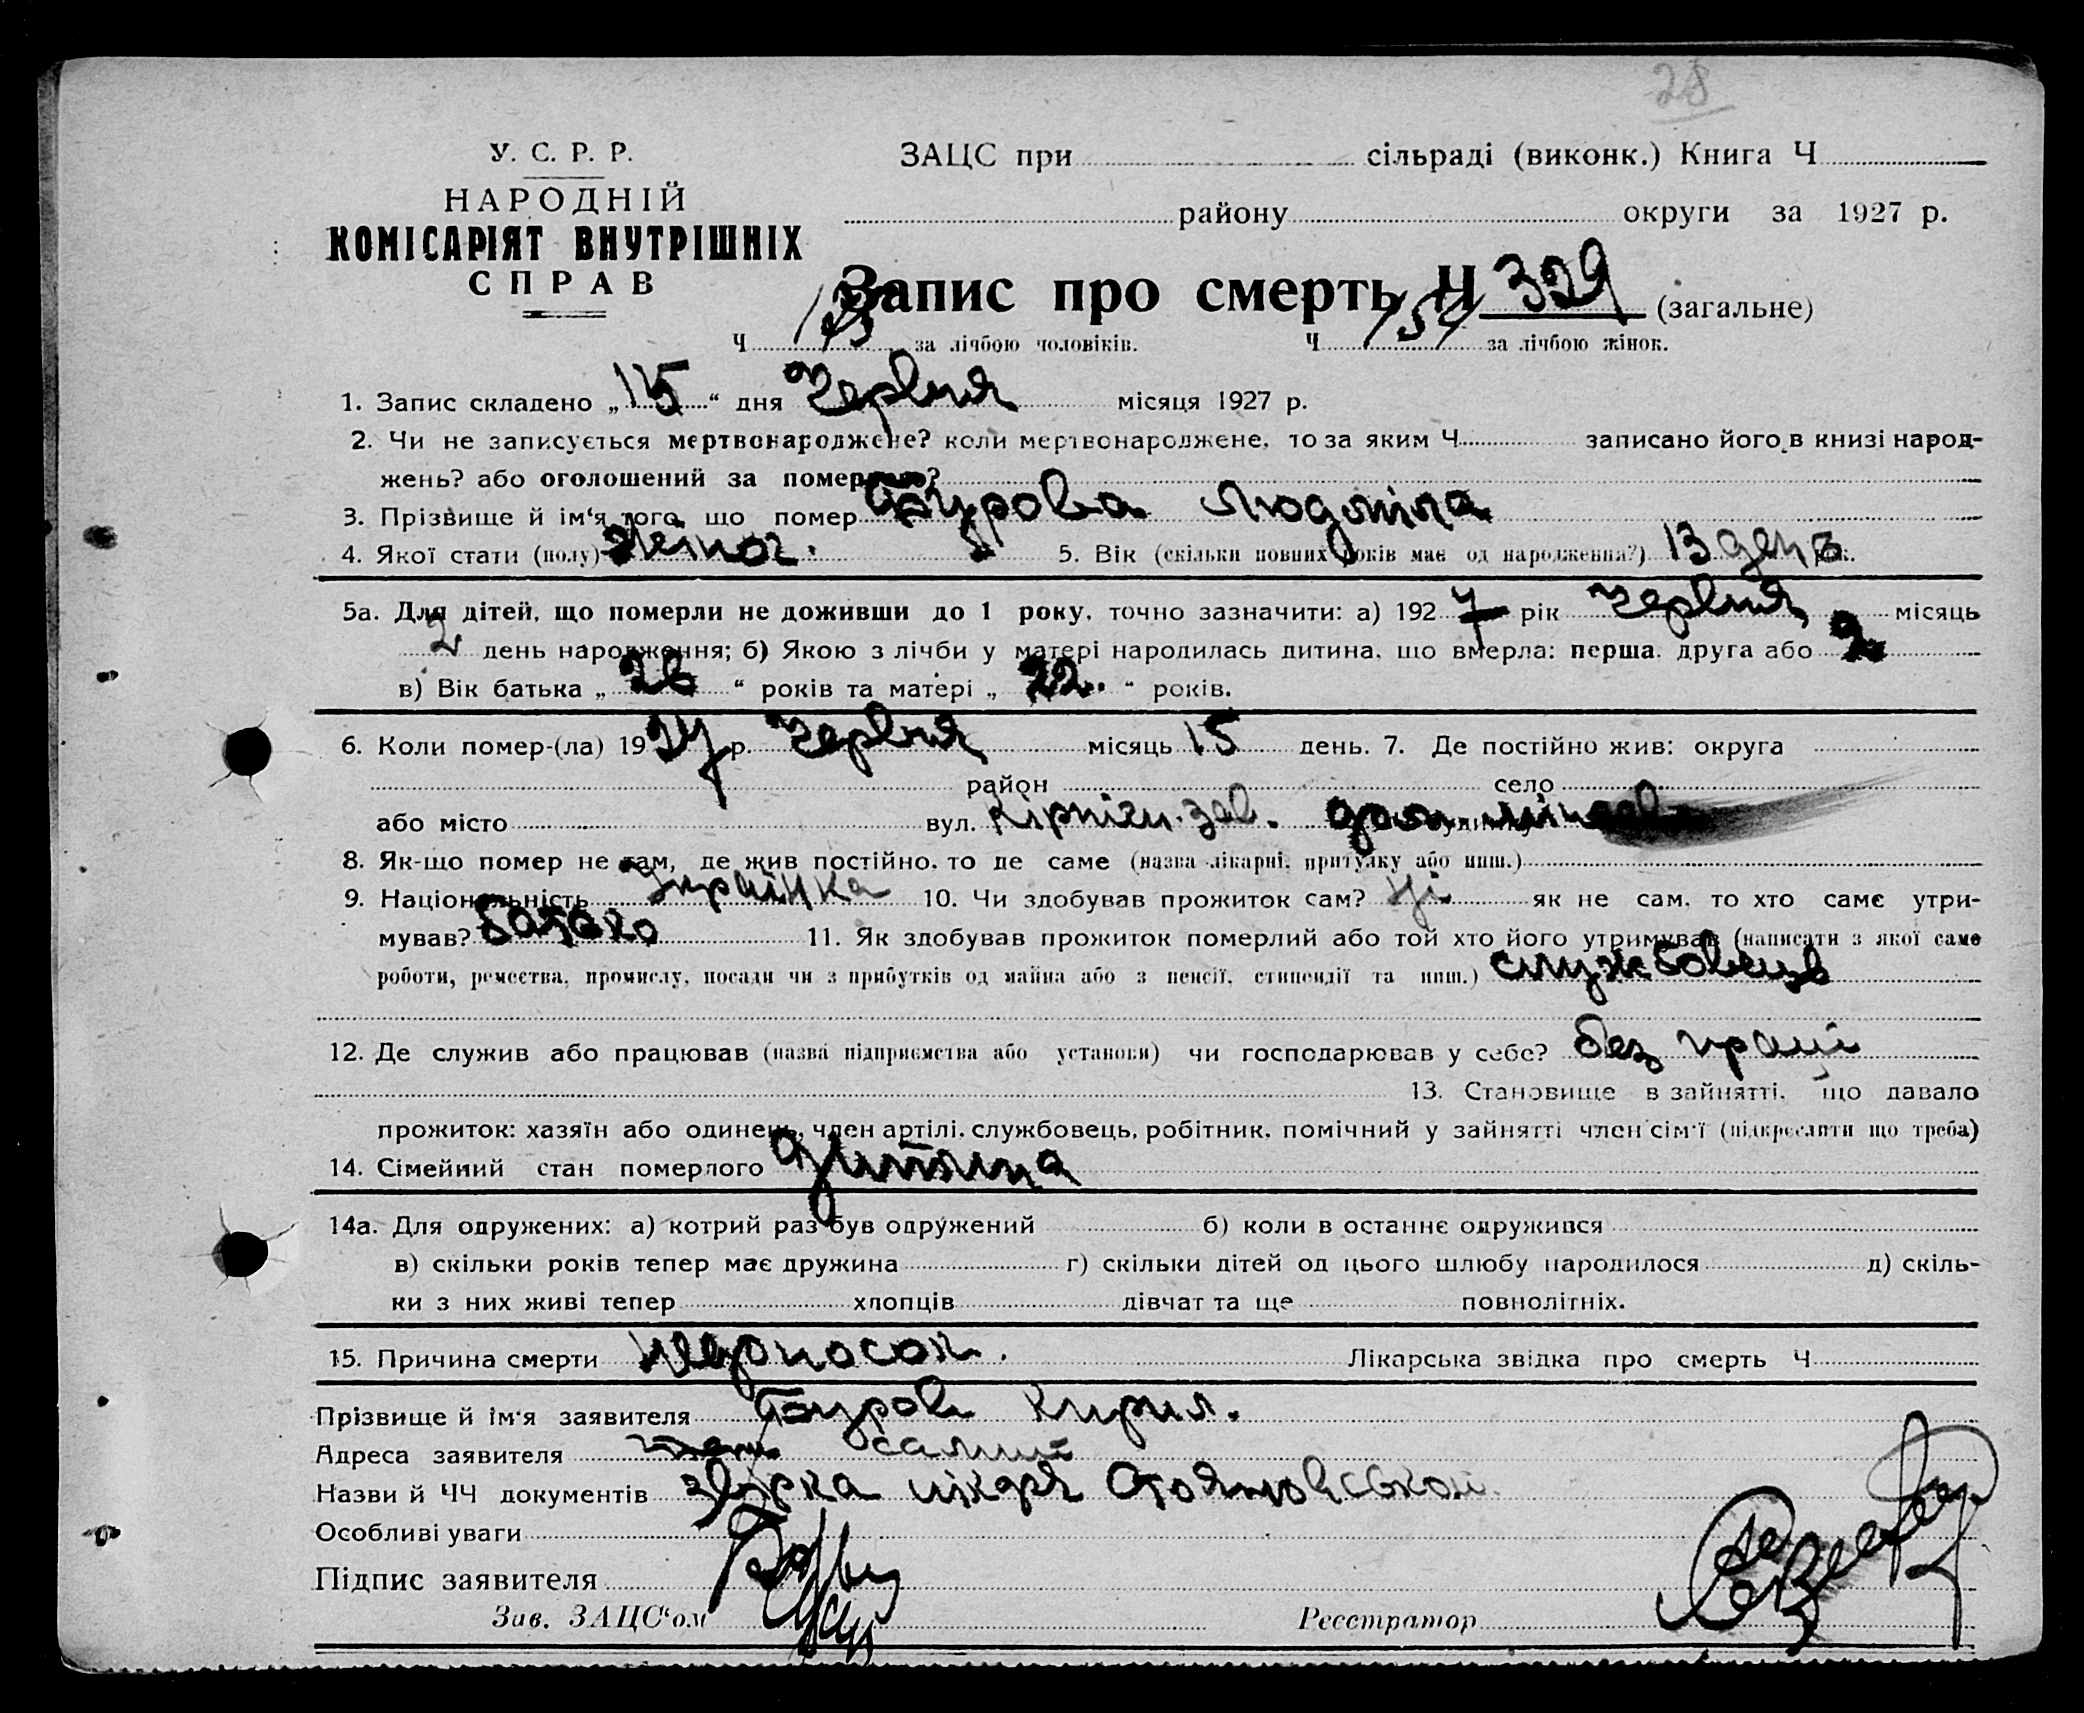 28
У. С. Р. Р.
НАРОДНІЙ
КОМІСАРІЯТ ВНУТРІШНІХ
СПРАВ
ЗАЦС при сільраді (виконк.) Книга Ч
району округи за 1927 р.
Запис про смерть Ч 329 (загальне)
Ч за лічбою чоловіків. Ч 154 за лічбою жінок.
1. Запис складено „15“ дня Червня місяця 1927 р.
2. Чи не записується мертвонароджене? коли мертвонароджене, то за яким Ч записано його в книзі народ-
жень? або оголошений за померлого?
3. Прізвище й ім‘я того, що помер Бурова Людміла
4. Якої стати (полу) жіноч. 5. Вік (скільки повних років має од народження?) 13 день
5а. Для дітей, що померли не доживши до 1 року, точно зазначити: а) 1927 рік Червня місяць
2 день народження; б) Якою з лічби у матері народилась дитина, що вмерла: перша, друга або 2
в) Вік батька „26“ років та матері „22.“ років.
6. Коли помер-(ла) 1927 р. Червня місяць 15 день. 7. Де постійно жив: округа
район село
або місто вул. Кірпічн. зав.
8. Як-що помер не там, де жив постійно, то де саме (назва лікарні, притулку або инш.)
9. Національність Українка 10. Чи здобував прожиток сам? Ні як не сам, то хто саме утри-
мував? батько 11. Як здобував прожиток померлий або той хто його утримував (написати з якої саме
роботи, ремества, промислу, посади чи з прибутків од майна або з пенсії, стипендії та инш.) службовець
12. Де служив або працював (назва підприємства або установи) чи господарював у себе? без праці
13. Становище в зайнятті, що давало
прожиток: хазяїн або одинець, член артілі, службовець, робітник, помічний у зайнятті член сім‘ї (підкреслити що треба)
14. Сімейний стан померлого дитина
14а. Для одружених: а) котрий раз був одружений б) коли в останнє одружився
в) скільки років тепер має дружина г) скільки дітей од цього шлюбу народилося д) скіль-
ки з них живі тепер хлопців дівчат та ще повнолітніх.
15. Причина смерти недоносок. Лікарська звідка про смерть Ч
Прізвище й ім‘я заявителя Буров Кирил.
Адреса заявителя
Назви й ЧЧ документів лікаря Стояновської
Особливі уваги
Підпис заявителя
Зав. ЗАЦС‘ом Реєстратор